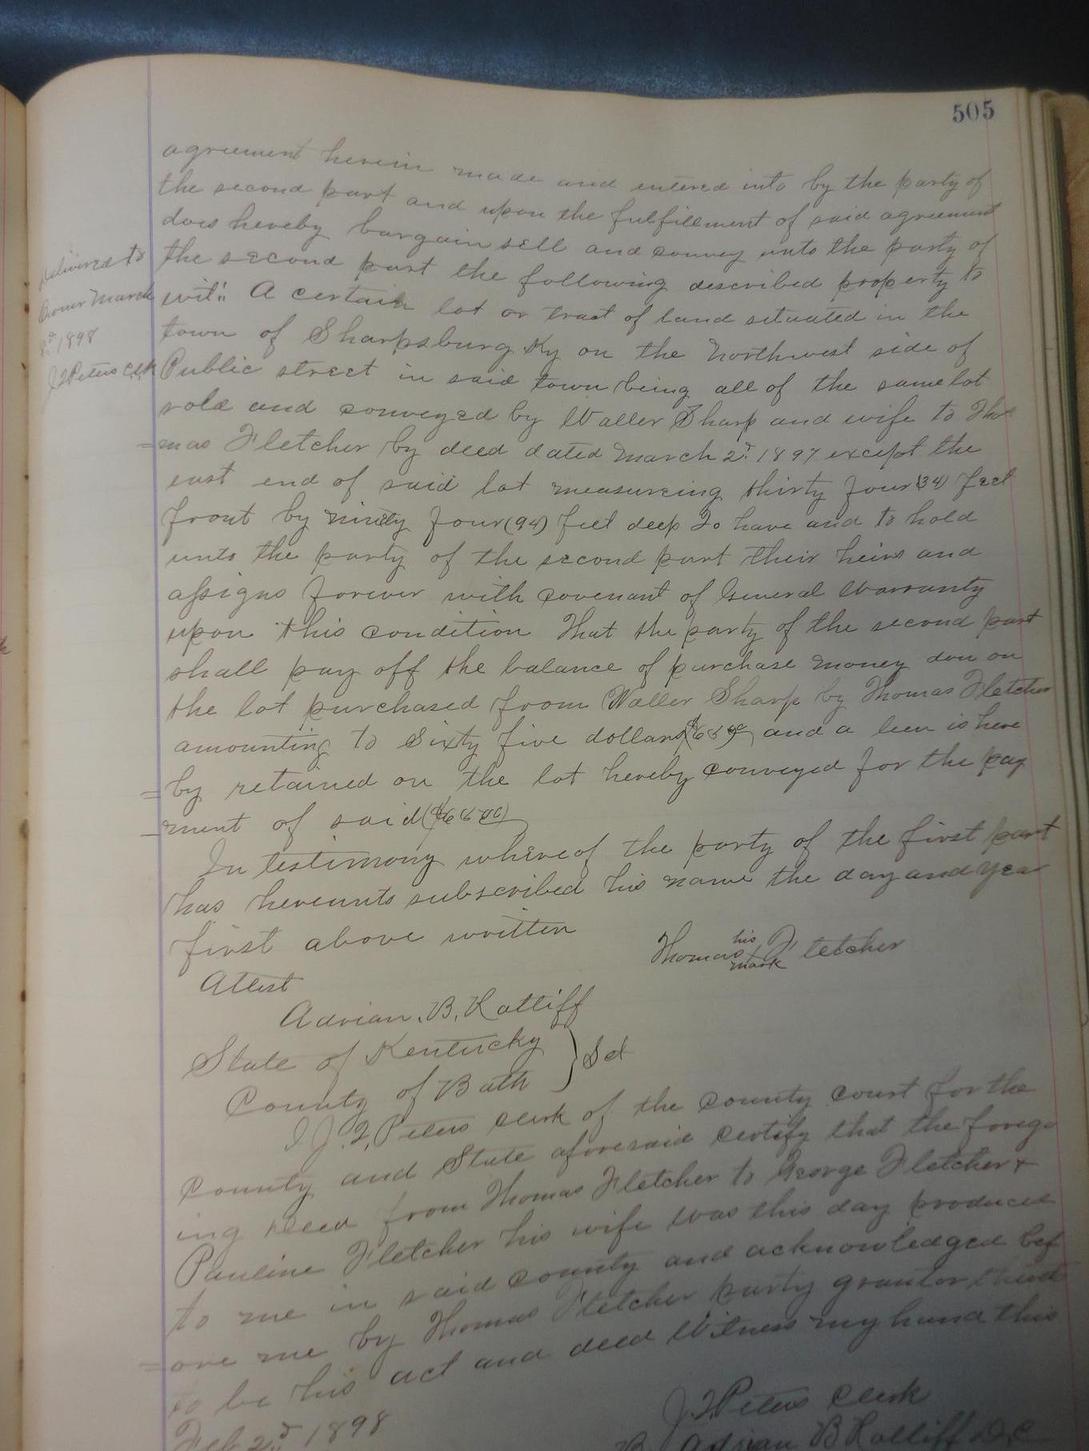 505
agreement herein made and entered into by the party of
the second part and upon the fulfillment of said agreement
does hereby bargain sell and convey unto the party of
the second part the following described property to
wit:: A certain lot or tract of land situated in the
town of Sharpsburg Ky on the Northwest side of
Public street in said town being all of the same lot
sold and conveyed by Waller Sharp and wife to Tho
=mas Fletcher by deed dated March 2d 1897 except the
east end of said lot measureing thirty four (34) feet
front by ninety four (94) feet deep To have and to hold
unto the party of the second part their heirs and
assigns forever with covenant of General Warranty
upon this condition That the party of the second part
shall pay off the balance of purchase money due on
the lot purchased from Waller Sharp by Thomas Fletcher
amounting to Sixty five dollars and a lien is here
=by retained on the lot hereby conveyed for the pay
=ment of said
In testimony whereof the party of the first part
has hereunto subscribed his name the day and year
first above written
Thomas his mark Fletcher
Attest
Adrian. B. Ratliff
State of Kentucky
County of Bath } Sct
I J. Peters clerk of the county court for the
County and State aforesaid certify that the forego
ing deed from Thomas Fletcher to George Fletcher +
Pauline Fletcher his wife was this day produced
to me in said county and acknowledged bef
=ore me by Thomas Fletcher party grantor
to be his act and deed Witness my hand this
Feb 2d 1898
Peters Clerk
B Adrian B Ratliff D.C
Delivered to
March
1898
Peters Clk